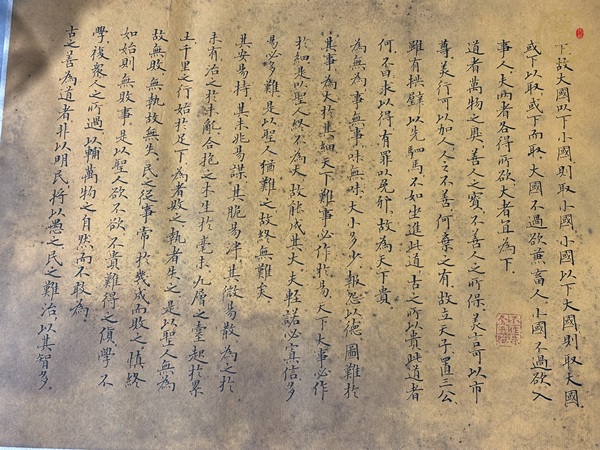 下故大國以下小國則取小國小國以下大國則取大國
或下以取或下而取大國不過欲兼畜人小國不過欲入
事人夫兩者各得所欲大者宜為下
道者萬物之奧善人之寶不善人之所保美言可以市
尊美行可以加人人之不善何棄之有故立天子置三公
雖有拱璧以先駟馬不如坐進此道古之所以貴此道者
何不曰求以得有罪以免邪故為天下貴
為無為事無事味無味大小多少報怨以德圖難於
其事為大於其細天下難事必作於易天下大事必作
於細是以聖人終不為大故能成其大夫輕諾必寡信多
易必多難是以聖人猶難之故終無難矣
其安易持其未兆易謀其脆易泮其微易散為之於
未有治之於未亂合抱之木生於毫末九層之臺起於累
土千里之行始於足下為者敗之執者失之是以聖人無為
故無敗無執故無失民之從事常於幾成而敗之慎終
如始則無敗事是以聖人欲不欲不貴難得之貨學不
學復眾人之所過以輔萬物之自然而不敢為
古之善為道者非以明民將以愚之民之難治以其智多